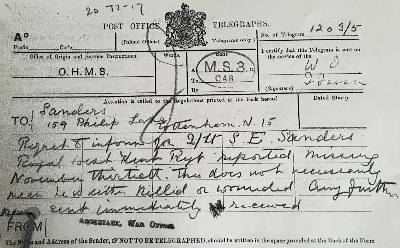 20 72-17
POST OFFICE TELEGRAPHS.
A° (Inland Official Telegrams only.) No. of Telegram 1203/5
Prefix Code
Office of Origin and Service Instructions. Words Sent I certify that this Telegram is sent on the service of the
O.H.M.S. At M.S.3. W O
To CAS
By (Signature)
Attention is called to the Regulations printed at the back hereof Dated Stamp
TO Sanders
159 Philip Lane Tottenham. N. 15
Regret to inform you 2/Lt S. E. Sanders
Royal West Kent Regt reported missing
November thirtieth. This does not necessarily
mean he is either killed or wounded Any further
news sent immediately received
FROM SECRETARY, WAR OFFICE
The Name and Address of the Sender, IF NOT TO BE TELEGRAPHED, should be written in the space provided at the Back of the Form